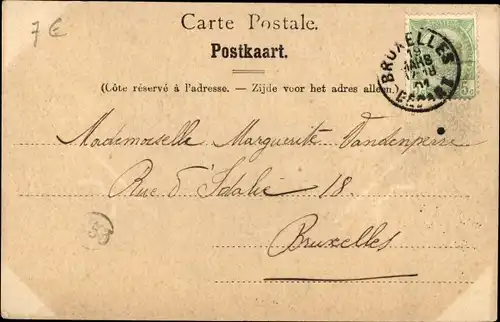 7 €
Carte Postale.
Postkaart.
(Côte réservé à l'adresse. — Zijde voor het adres alleen.)
BRUXELLES
19
MARS
17-18
01
DEPART
5
Mademoiselle Marguerite Vandenperre
Rue d'Idalie 18.
Bruxelles
53